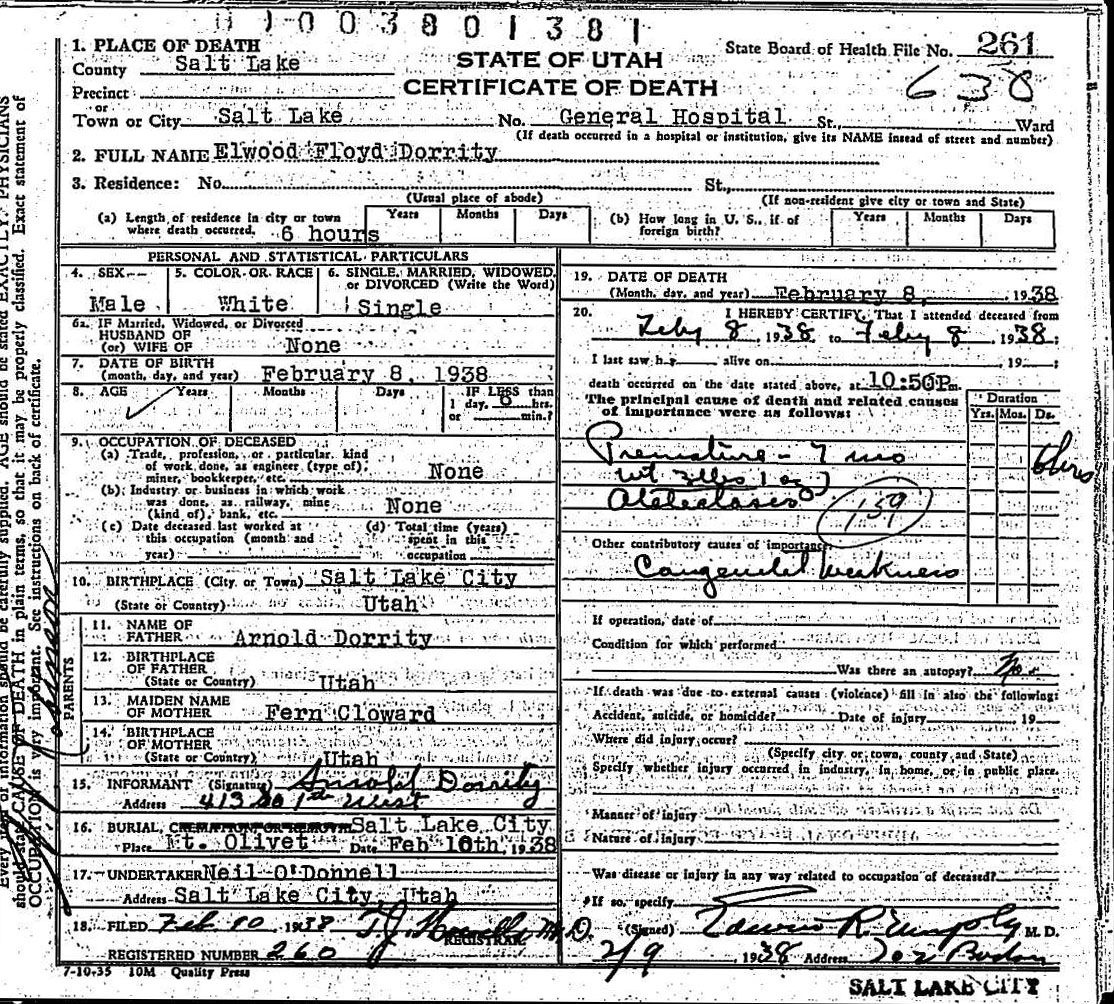 01003801381
1. PLACE OF DEATH
County Salt Lake
STATE OF UTAH
CERTIFICATE OF DEATH
State Board of Health File No. 261
638
Precinct
or
Town or City Salt Lake No. General Hospital St., Ward
(If death occurred in a hospital or institution, give its NAME insead of street and number)
2. FULL NAME Elwood Floyd Dorrity
3. Residence: No. St.,
(Usual place of abode) (If non-resident give city or town and State)
(a) Length of residence in city or town where death occurred. 6 hours Years Months Days
(b) How long in U. S., if of foreign birth? Years Months Days
PERSONAL AND STATISTICAL PARTICULARS
4. SEX Male
5. COLOR OR RACE White
6. SINGLE, MARRIED, WIDOWED, or DIVORCED (Write the Word) Single
6a. IF Married, Widowed, or Divorced
HUSBAND OF
(or) WIFE OF None
7. DATE OF BIRTH
(month, day, and year) February 8, 1938
8. AGE Years Months Days IF LESS than
1 day, 6 hrs.
or min.?
9. OCCUPATION OF DECEASED
(a) Trade, profession, or particular kind
of work done, as engineer (type of),
miner, bookkeeper, etc. None
(b) Industry or business in which work
was done, as railway, mine
(kind of), bank, etc. None
(c) Date deceased last worked at
this occupation (month and
year)
(d) Total time (years)
spent in this
occupation
10. BIRTHPLACE (City or Town) Salt Lake City
(State or Country) Utah
PARENTS
11. NAME OF
FATHER Arnold Dorrity
12. BIRTHPLACE
OF FATHER
(State or Country) Utah
13. MAIDEN NAME
OF MOTHER Fern Cloward
14. BIRTHPLACE
OF MOTHER
(State or Country) Utah
15. INFORMANT (Signature) Arnold Dorrity
Address 413 So 1st West
16. BURIAL, CREMATION OR REMOVAL Salt Lake City
Place Mt. Olivet Date Feb 10th, 1938
17. UNDERTAKER Neil O'Donnell
Address Salt Lake City, Utah
18. FILED Feb 10 1938 T.J. M.D.
REGISTRAR
REGISTERED NUMBER 260
7-10-35 10M Quality Press
19. DATE OF DEATH
(Month, day, and year) February 8, 1938
20. I HEREBY CERTIFY, That I attended deceased from
Feby 8, 1938 to Feby 8, 1938;
I last saw h alive on 19 ;
death occurred on the date stated above, at 10:50P m.
The principal cause of death and related causes
of importance were as follows:
Duration
Yrs. Mos. Ds.
Premature - 7 mo
wt 3 lbs 1 oz)
Atelectasis
6 hrs
159
Other contributory causes of importance:
Congenital Weakness
If operation, date of
Condition for which performed
Was there an autopsy? No.
If death was due to external causes (violence) fill in also the following:
Accident, suicide, or homicide? Date of injury 19
Where did injury occur?
(Specify city or town, county and State)
Specify whether injury occurred in industry, in home, or in public place.
Manner of injury
Nature of injury
Was disease or injury in any way related to occupation of deceased?
If so, specify
(Signed) Edwin R M. D.
2/9 1938 Address
SALT LAKE CITY
should be carefully supplied. AGE should be stated EXACTLY. PHYSICIANS
should state CAUSE OF DEATH in plain terms, so that it may be properly classified. Exact statement of
OCCUPATION is very important. See instructions on back of certificate.